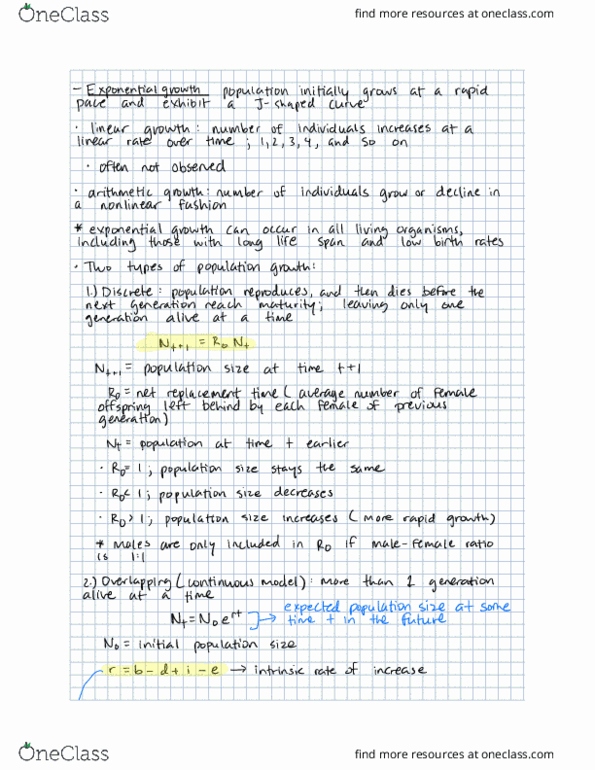 OneClass
find more resources at oneclass.com
- Exponential growth population initially grows at a rapid
pace and exhibit a J-shaped curve
· linear growth: number of individuals increases at a
linear rate over time ; 1,2,3,4, and so on
· often not observed
· arithmetic growth: number of individuals grow or decline in
a nonlinear fashion
* exponential growth can occur in all living organisms,
including those with long life span and low birth rates
· Two types of population growth:
1.) Discrete: population reproduces, and then dies before the
next generation reach maturity; leaving only one
generation alive at a time
Nt+1 = R0 Nt
Nt+1 = population size at time t+1
R0 = net replacement time ( average number of female
offspring left behind by each female of previous
generation)
Nt = population at time t earlier
· R0= 1 ; population size stays the same
· R0< 1; population size decreases
· R0> 1; population size increases ( more rapid growth)
* Males are only included in R0 if male-female ratio
is 1:1
2.) Overlapping (continuous model): more than 1 generation
alive at a time
Nt=N0e^rt → expected population size at some
time t in the future
N0 = initial population size
r = b - d + i - e → intrinsic rate of increase
OneClass
find more resources at oneclass.com